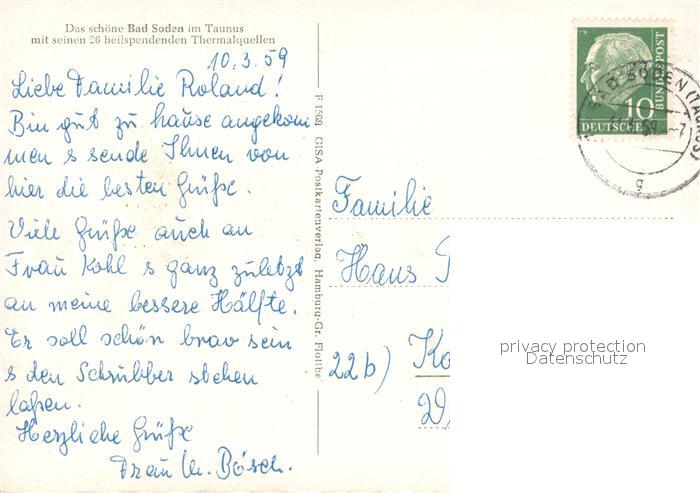 Das schöne Bad Soden im Taunus
mit seinen 26 heilspendenden Thermalquellen
10.3.59
Liebe Familie Roland!
Bin gut zu hause angekom
men s sende Ihnen von
hier die besten Grüße.
Viele Grüße auch an
Frau Kohl s ganz zuletzt
an meine bessere Hälfte.
Er soll schön brav sein
s den Schrubber stehen
laßen.
Herzliche Grüße
Frau Bösch.
F 1509 GISA-Postkartenverlag, Hamburg-Gr. Flottbek
Familie
Hans
22b)
10
DEUTSCHE
BUNDESPOST
BAD SODEN (TAUNUS)
-7
g
privacy protection
Datenschutz